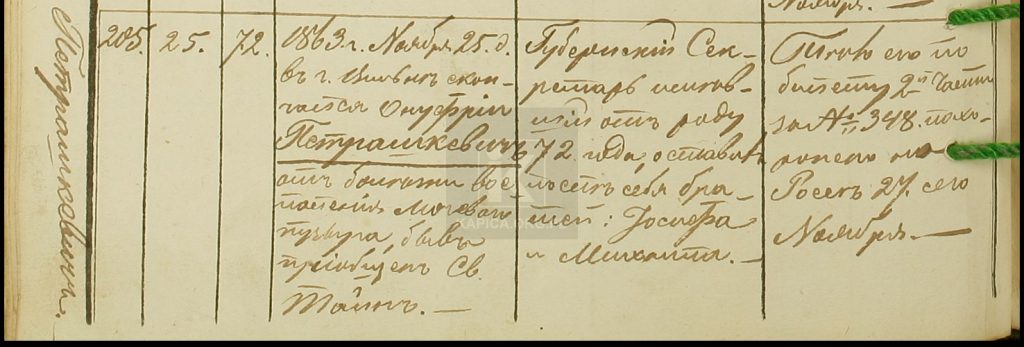 Ноября. —
Петрашкевичъ.
205.
25.
72.
1863. г. Ноября 25. д.
въ г. Вильнѣ скон-
чался Онуфрій
Петрашкевичъ
отъ болѣзни вос-
паленія мочеваго
пузыря, бывъ
пріобщенъ Св.
Тайнъ. —
Губернскій Сек-
ретарь имѣв-
шій отъ роду
72. года, оставив
послѣ себя бра-
тьей: Іосифа
и Михаила. —
Тѣло его по
билету 2й Части
за № 348. похо-
ронено на
Россѣ 27. сего
Ноября. —